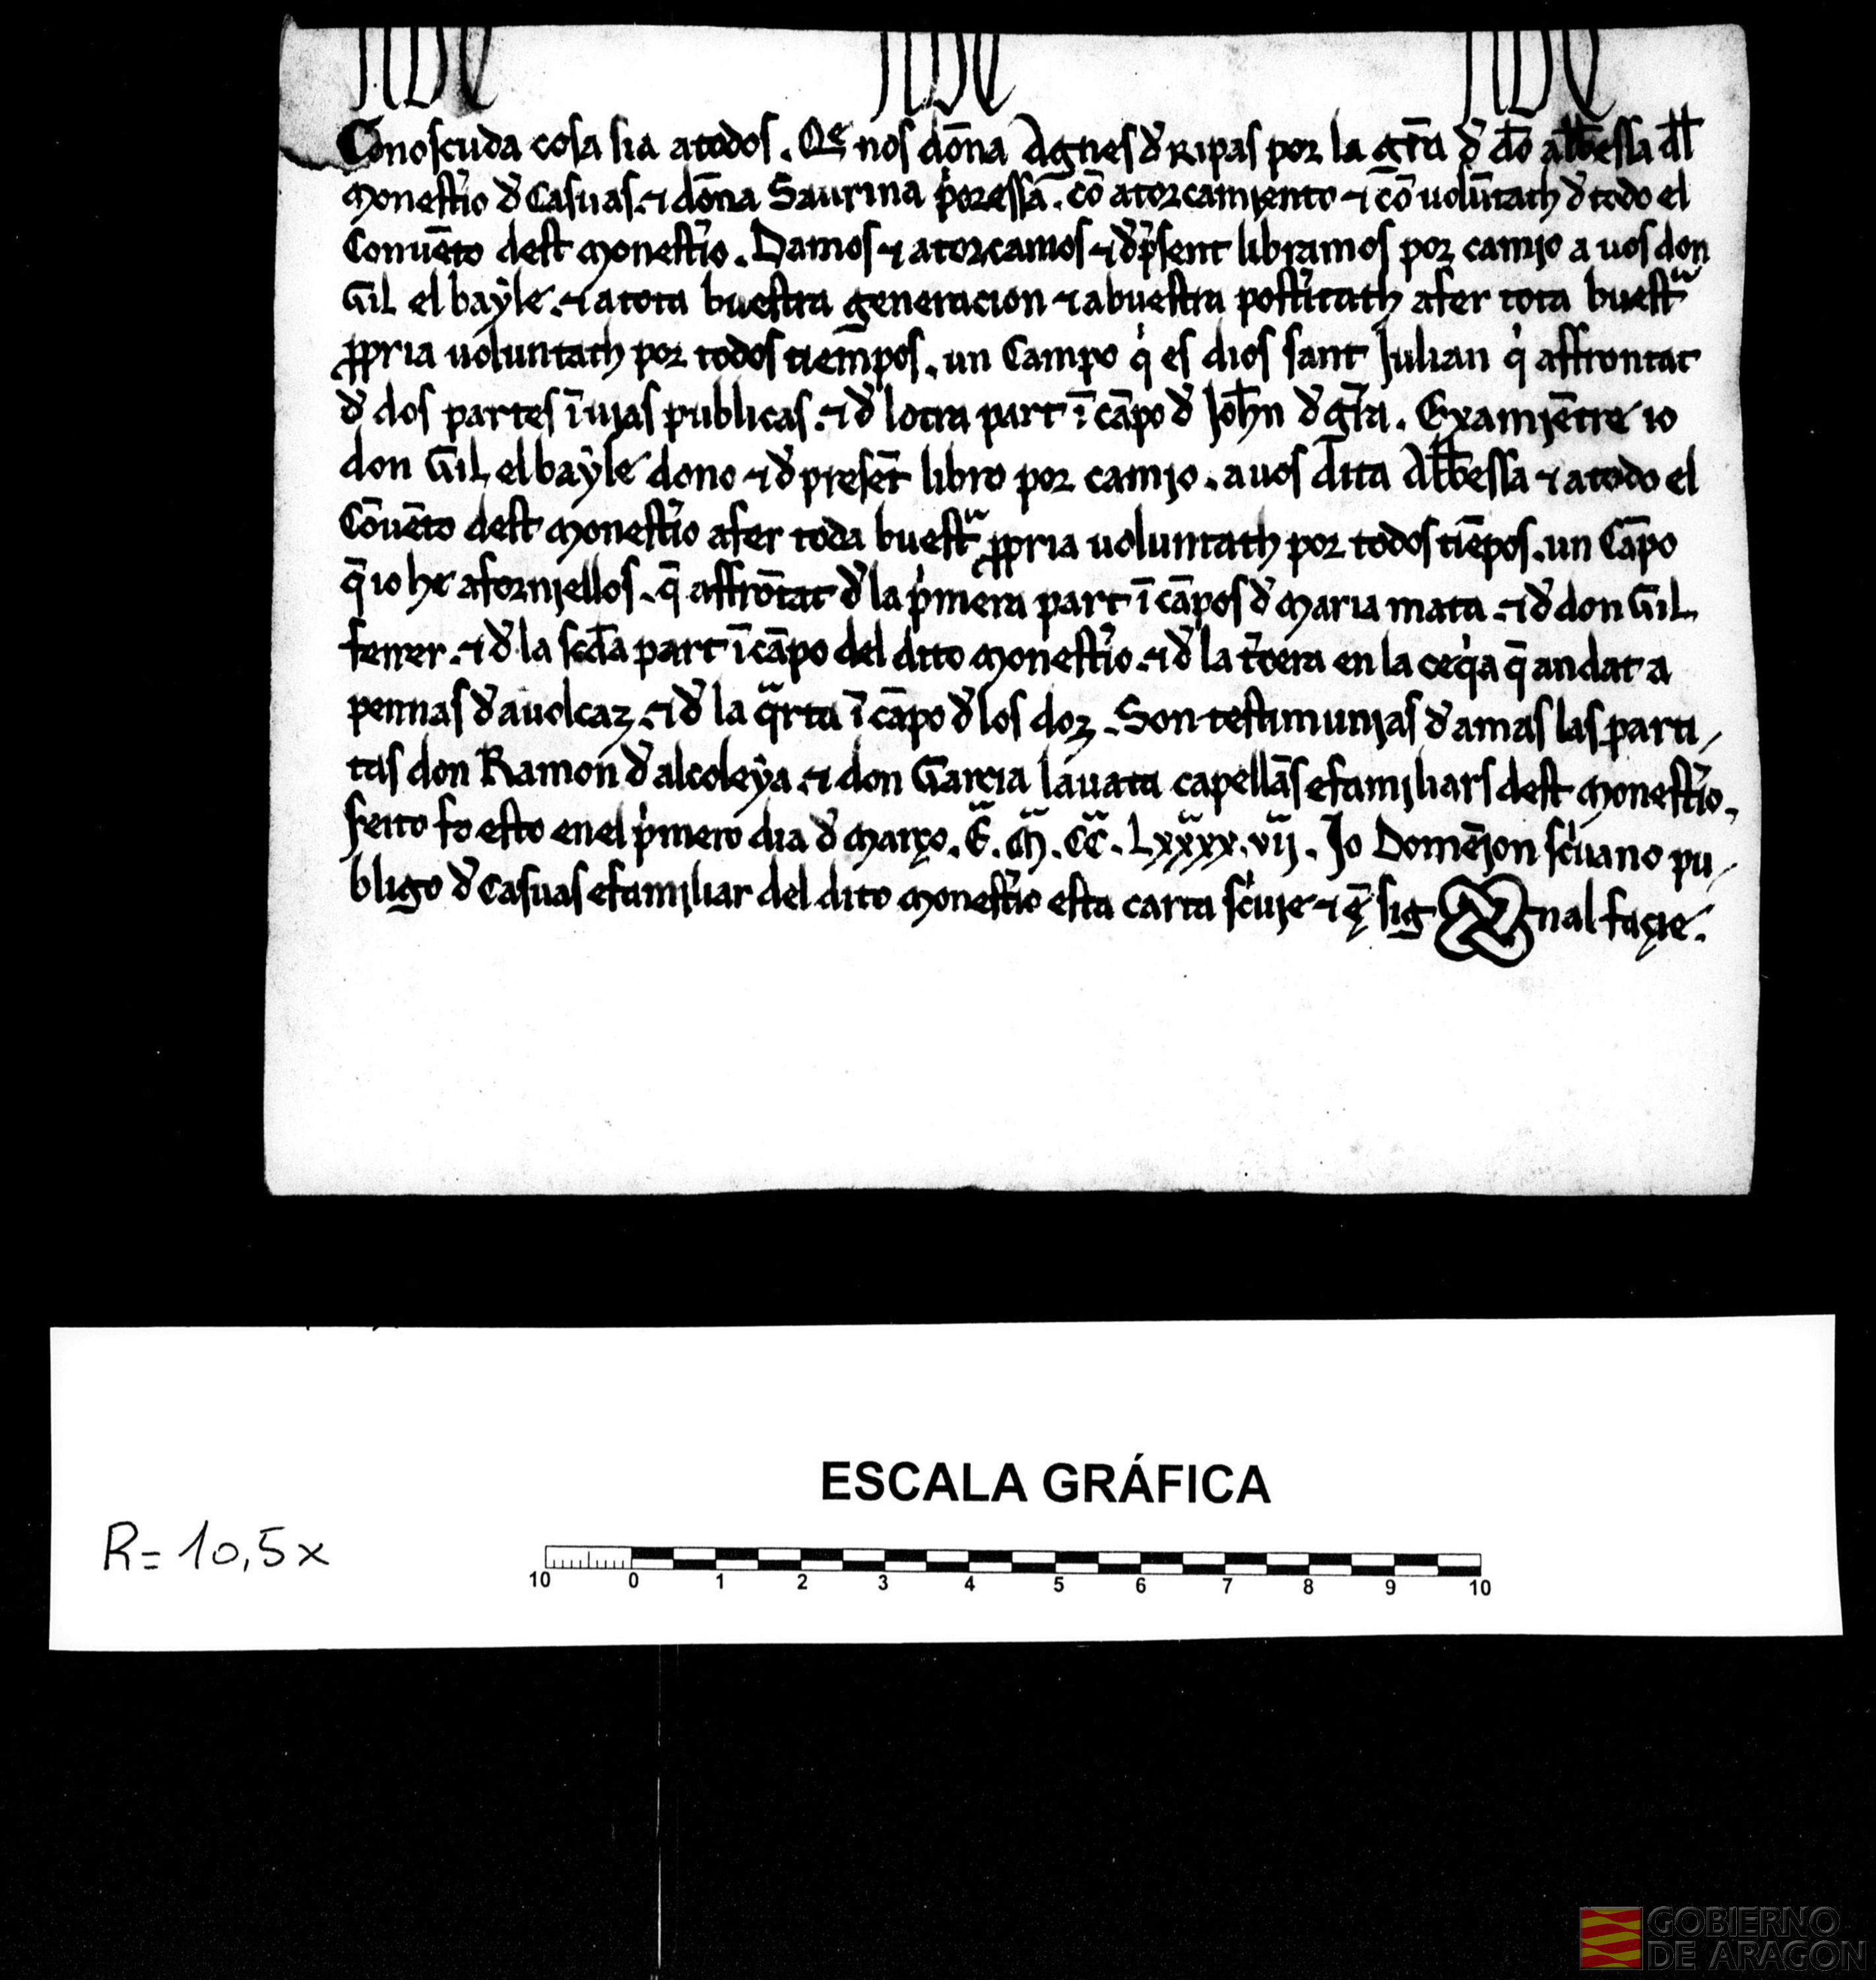 Conoscuda cosa sia a todos. Qe nos dōna Agnes d' Ripas por la grā d' dō abbessa dll
Monest'io d' Casuas. ⁊ dōna Saurina p'oressa. cō atorcamiento ⁊ cō voluntath d' todo el
Conuēto dest Monest'io. Damos ⁊ atorcamos ⁊ d' p'sent libramos por camio a uos don
Gil el bayle. ⁊ a tota buestra generacion ⁊ a buestra post'itath a fer tota buestᵃ
ppria uoluntath por todos tiempos. un Campo q' es dios sant Julian q' affrontat
d' dos partes ī uias publicas. ⁊ d' lotra part ī cāpo d' John d' grā. Examiētre io
don Gil el bayle dono ⁊ d' presēt libro por camio. a uos dita Abbessa ⁊ a todo el
Cōuēto dest Monest'io a fer toda buestᵃ ppria uoluntath por todos tiēpos. un Cāpo
q̄ io he a forniellos. q̄ affrōtat d' la p'mera part ī cāpos d' Maria mata. ⁊ d' don Gil
ferrer. ⁊ d' la scda part ī cāpo del dito Monest'io. ⁊ d' la t'cera en la ceq'a q̄ andat a
pennas d' auolcaz. ⁊ d' la qᵃrta ī cāpo d' los doz. Son testimunias d' amas las parti/
tas don Ramon d' alcoleya. ⁊ don Garcia lauata capellās e familiars dest Monest'io.
feito fo esto en el p'mero dia d' Março. E. M. CC. Lxxxx. vij. Jo Domēion sc'uano pu/
bligo d' Casuas e familiar del dito Monest'io esta carta sc'uie ⁊ ę sig nal façie.
ESCALA GRÁFICA
R= 10,5x
10 0 1 2 3 4 5 6 7 8 9 10
GOBIERNO
DE ARAGON